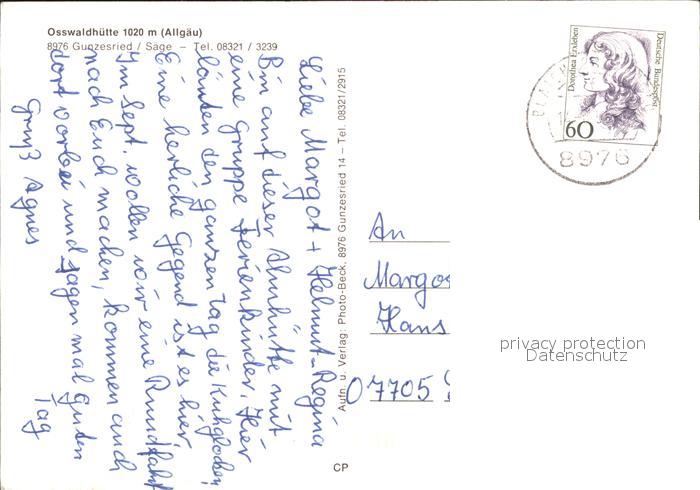 Osswaldhütte 1020 m (Allgäu)
8976 Gunzesried / Säge - Tel. 08321 / 3239
Liebe Margot + Helmut - Regina
Bin auf dieser Almhütte mit
eine Gruppe Ferienkinder. Hier
läuten den ganzen Tag die Kuhglocken
Eine herliche Gegend ist es hier,
Im Sept. wollen wir eine Rundfahrt
nach Euch machen, kommen auch
dort vorbei und sagen mal guten
Tag
Gruß Agnes
Aufn. u. Verlag: Photo-Beck, 8976 Gunzesried 14 – Tel. 08321/2915
CP
Dorothea Erxleben
Deutsche Bundespost
60
8976
An
Margot
Hans
07705
privacy protection
Datenschutz